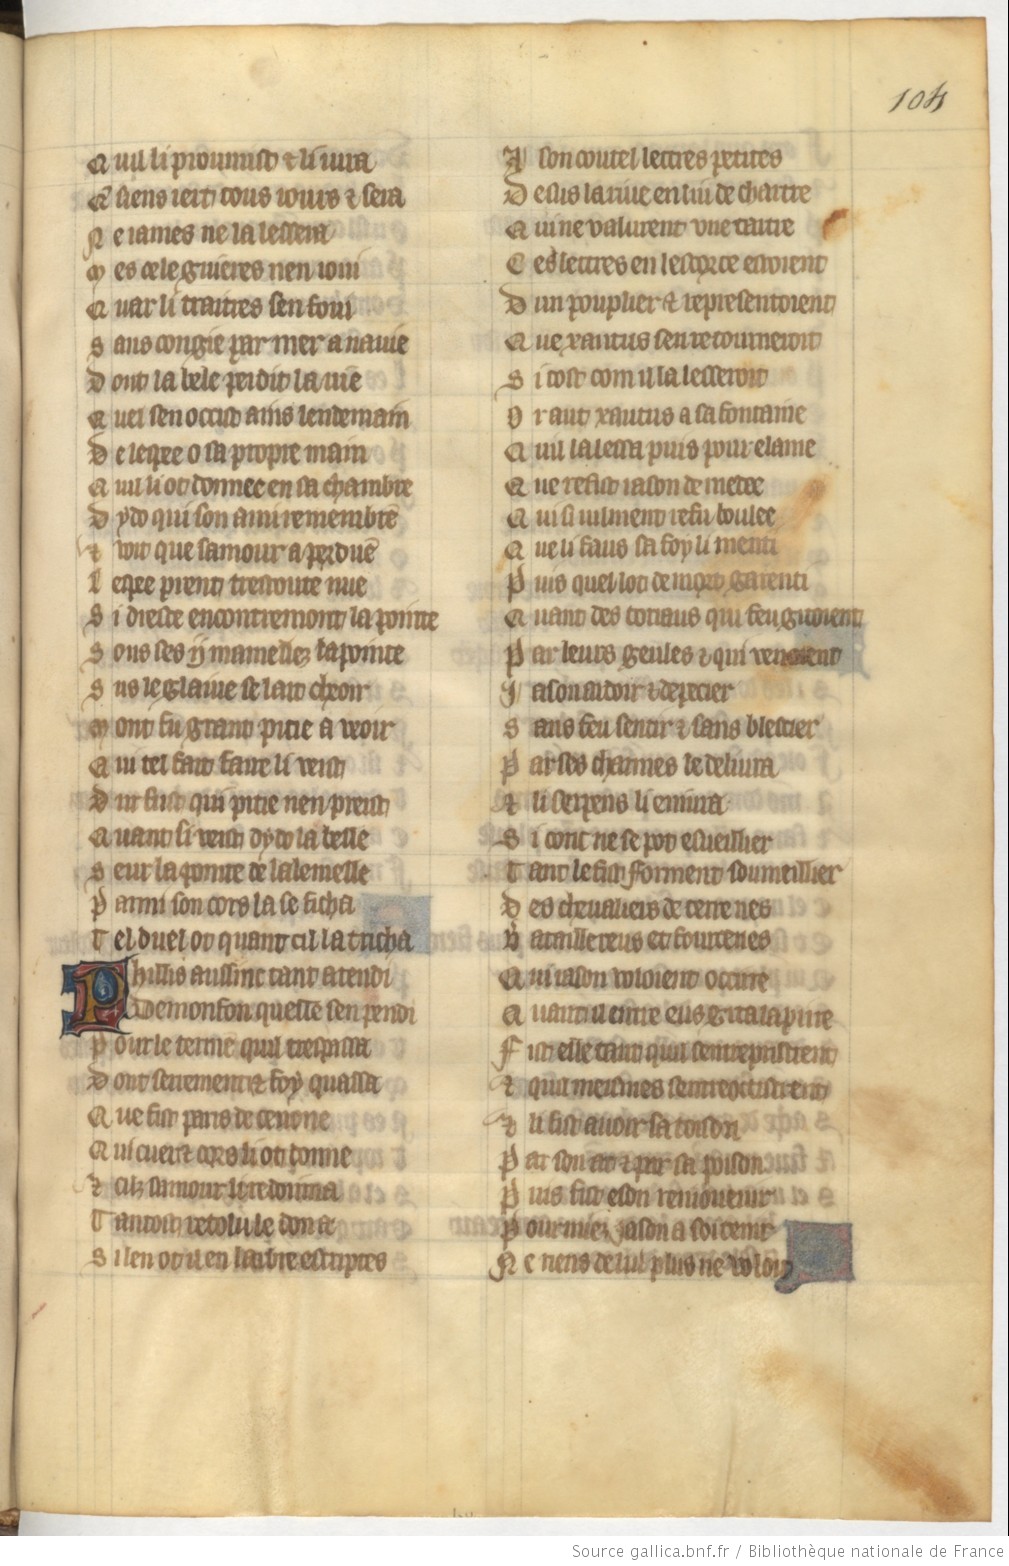 104
Q uil li proumist et li iura
Q siens iert tous iours et sera
N e iames ne la lessera
M es cele guieres nen ioui
Q uar li traitres sen foui
S ans congie par mer a nauie
D ont la bele perdit la vie
Q uel sen occist ains lendemain
D e lespee o sa propre main
Q uil li ot donnee en sa chambre
D ydo qui son ami remembre
Et voit que samour a perdue
L espee prent trestoute nue
S i dresce encontremont la pointe
S ous ses ii mameles la pointe
S us le glaiue se lait cheoir
M out fu grant pitie a veoir
Q ui tel fait faire li veist
D ur fust qui pitie nen preist
Q uant si veist dydo la belle
S eur la pointe de lalemelle
P armi son cors la se ficha
T el duel ot quant cil la tricha
Phillis aussinc tant atendi
Demonfon quelle sen pendi
P our le terme quil trespassa
D ont serement et foy quassa
Q ue fist paris de cenone
Q ui cuer et cors li ot donne
Et cilz samour li redonna
T antost retolu le don a
S il en ot il en larbre escriptes
A son coutel lettres petites
D esus la riue en lui de chartre
Q ui ne valurent vne tartre
C es lettres en lescorce estoient
D un pouplier et representoient
Q ue xantus sen retourneroit
S i tost com il la lesseroit
O r aut xantus a sa fontaine
Q uil la lessa puis pour elaine
Q ue refist iason de medee
Q ui si uilment refu boulee
Q ue li faus sa foy li menti
P uis quel lot de mort garenti
Q uant des toriaus qui feu gitoient
P ar leurs geules et qui venoient
I ason ardoir et depecier
S ans feu sentir et sans blescier
P ar ses charmes le deliura
Et li serpens li eniura
S i conc ne se pot esueillier
T ant le fist forment soumeillier
D es cheualiers de terre nes
B ataillereus et fourcenes
Q ui iason voloient occirre
Q uant il entre eus gita la pirre
F ist elle tant quil sentrepristrent
Et quil meismes sentreoccistrent
Et li fist auoir sa toison
P ar son art et par sa poison
P uis fist eson renouenir
P our miez iason a soi tenir
N e riens de lui plus ne voloit